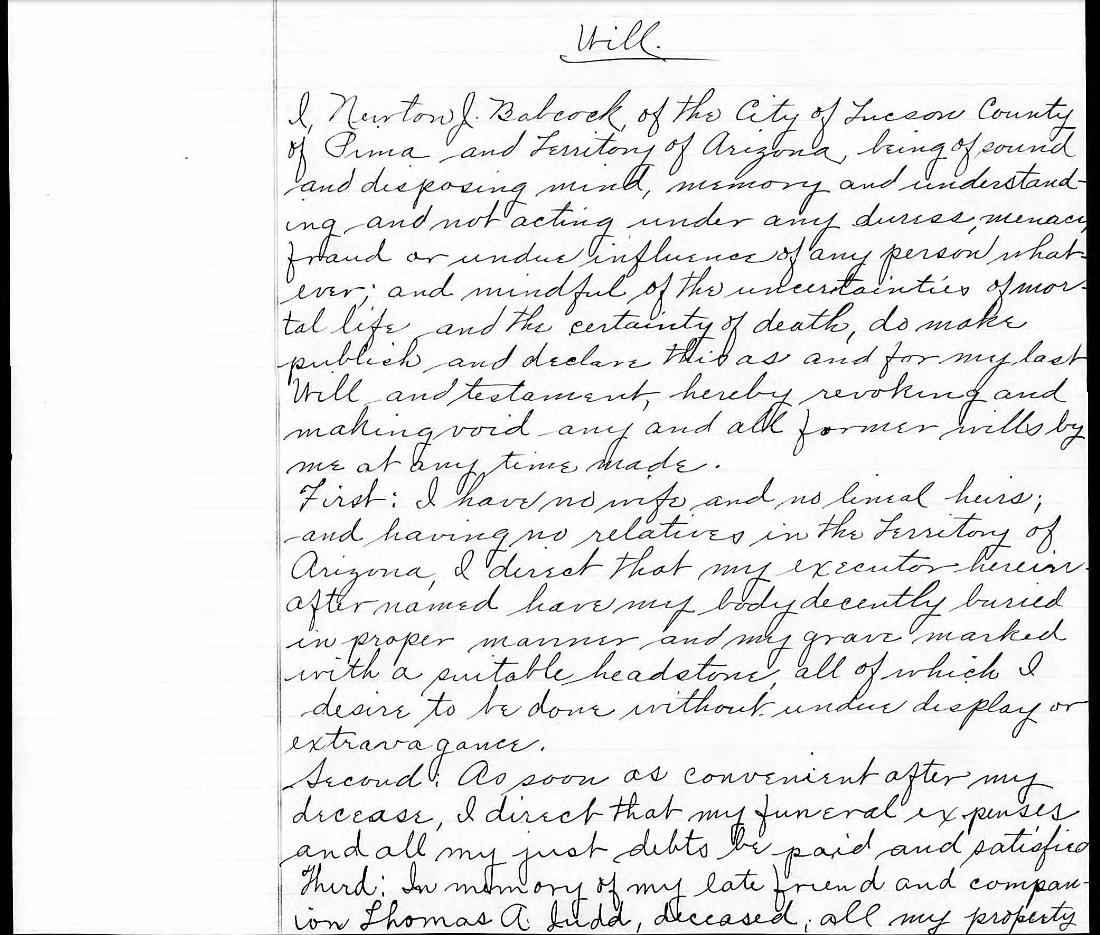 Will.
I, Newton J. Babcock, of the City of Tucson County
of Pima and Territory of Arizona, being of sound
and disposing mind, memory and understand-
ing and not acting under any duress, menace,
fraud or undue influence of any person what-
ever; and mindful of the uncertainties of mor-
tal life and the certainty of death, do make
publish and declare this as and for my last
Will and testament, hereby revoking and
making void any and all former wills by
me at any time made.
First: I have no wife and no lineal heirs;
and having no relatives in the Territory of
Arizona, I direct that my executor herein-
after named have my body decently buried
in proper manner and my grave marked
with a suitable headstone, all of which I
desire to be done without undue display or
extravagance.
Second: As soon as convenient after my
decease, I direct that my funeral expenses
and all my just debts be paid and satisfied
Third: In memory of my late friend and compan-
ion Thomas A. Judd, deceased, all my property